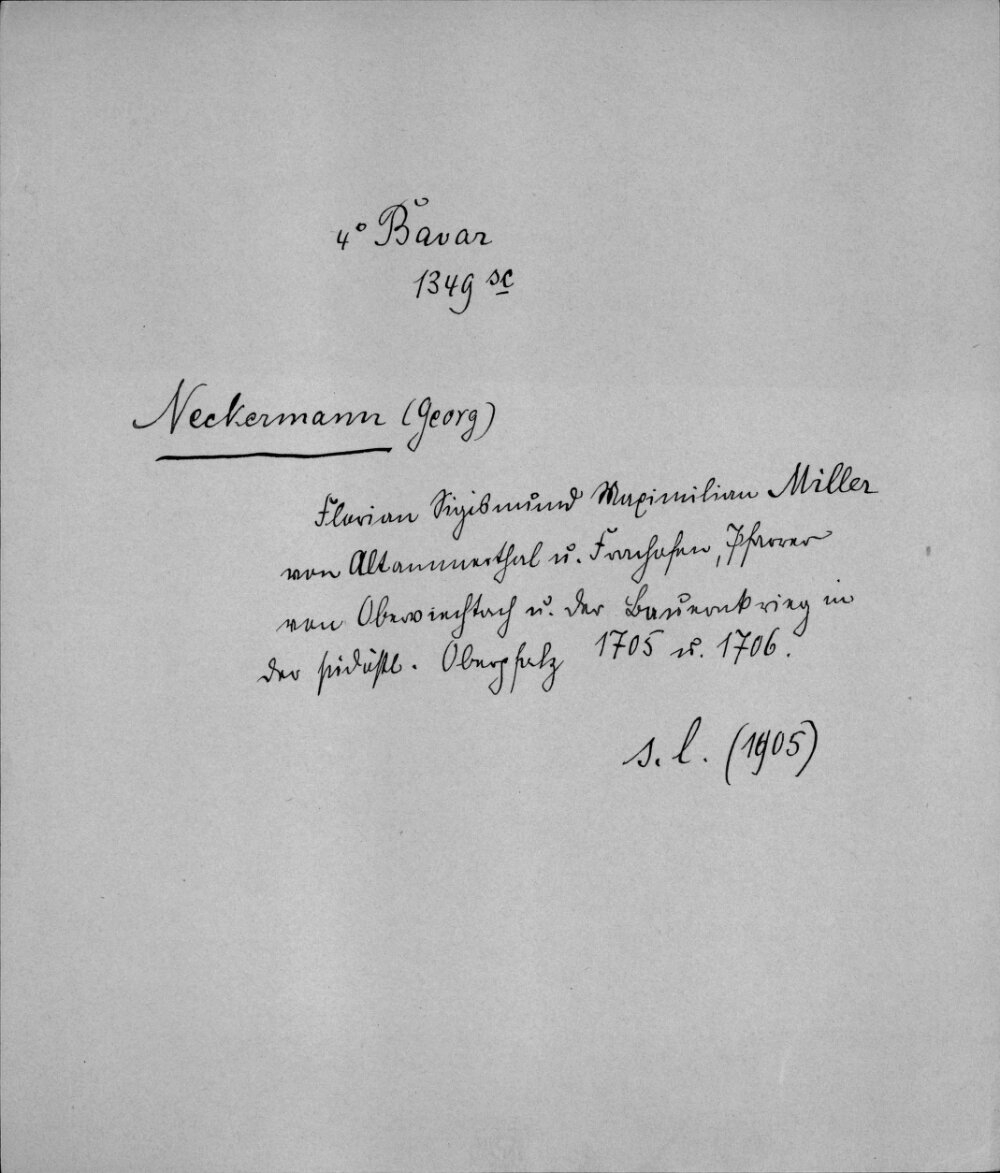 4° Bavar
1349 sc
Neckermann (Georg)
Florian Sigismund Maximilian Miller
von Altammerthal u. Fronhofen, Pfarrer
von Oberviechtach u. der Bauernkrieg in
der südöstl. Oberpfalz 1705 u. 1706.
s. l. (1905)